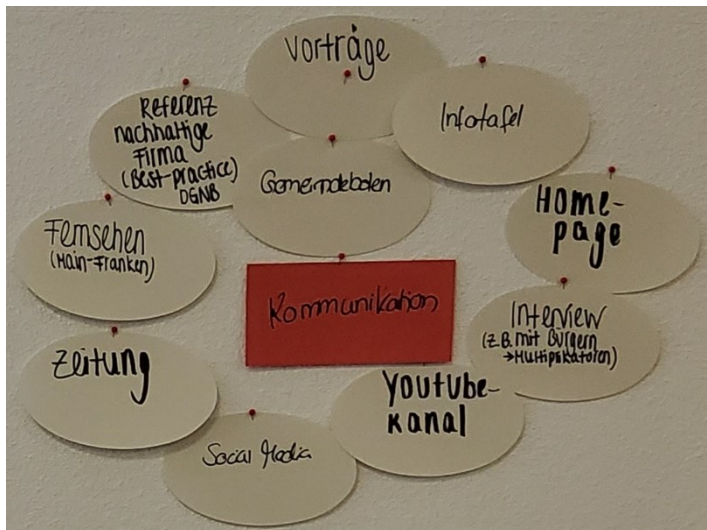 Vorträge
Infotafel
Referenz
nachhaltige
Firma
(Best-practice)
DGNB
Gemeindeboten
Home-
page
Fernsehen
(Main-Franken)
Kommunikation
Interview
(z.B. mit Bürgern
→Multiplikatoren)
Zeitung
Youtube-
Kanal
Social Media